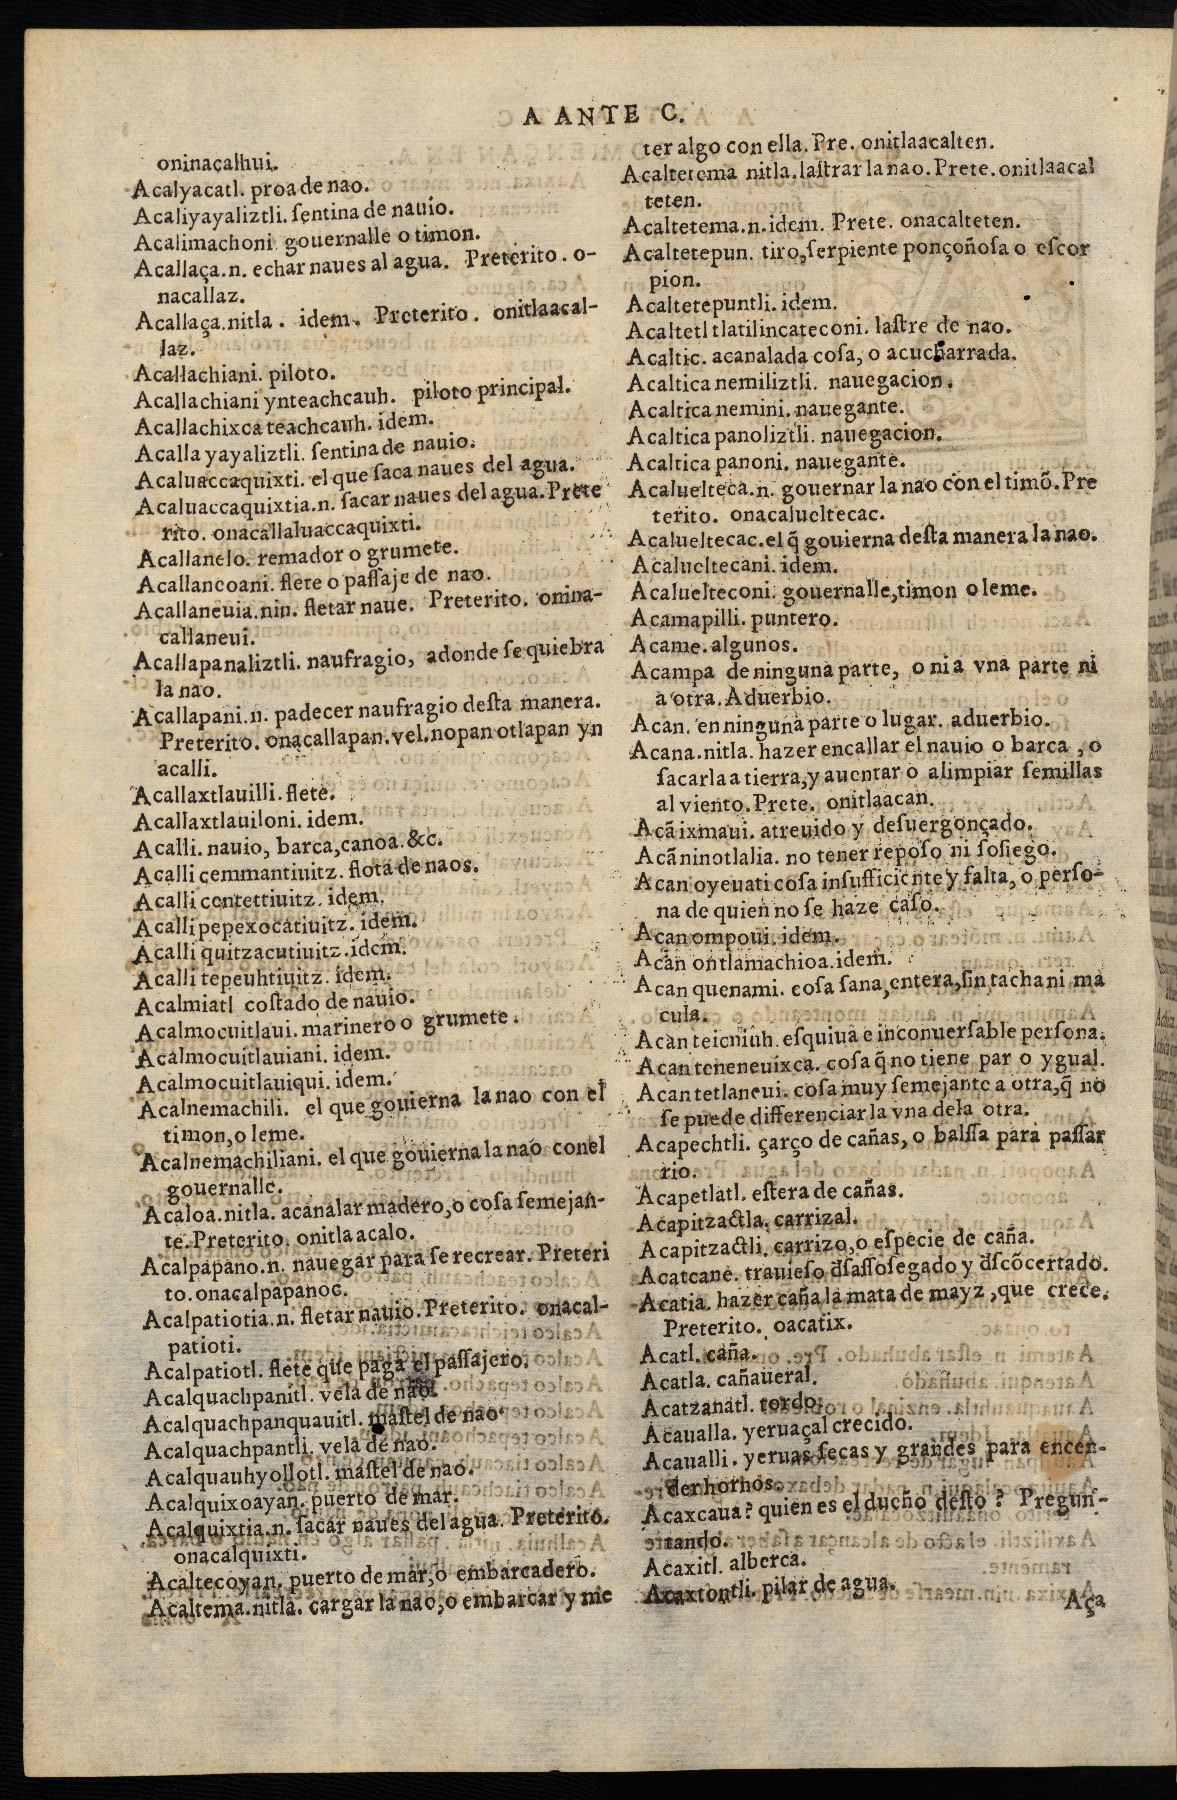 A ANTE C.
oninacalhui.
Acalyacatl. proa de nao.
Acaliyayaliztli. ſentina de nauio.
Acalimachoni. gouernalle o timon.
Acallaça.n. echar naues al agua. Preterito. o-
nacallaz.
Acallaça.nitla. idem. Preterito. onitlaacal-
laz.
Acallachiani. piloto.
Acallachiani ynteachcauh. piloto principal.
Acallachixca teachcauh. idem.
Acalla yayaliztli. ſentina de nauio.
Acaluaccaquixti. el que ſaca naues del agua.
Acaluaccaquixtia.n. ſacar naues del agua. Prete
rito. onacallaluaccaquixti.
Acallanelo. remador o grumete.
Acallancoani. flete o paſſaje de nao.
Acallaneuia.nin. fletar naue. Preterito. onina-
callaneui.
Acallapanaliztli. naufragio, adonde ſe quiebra
la nao.
Acallapani.n. padecer naufragio deſta manera.
Preterito. onacallapan.vel.nopan otlapan yn
acalli.
Acallaxtlauilli. flete.
Acallaxtlauiloni. idem.
Acalli. nauio, barca, canoa. &c.
Acalli cemmantiuitz. flota de naos.
Acalli centettiuitz. idem.
Acalli pepexocatiuitz. idem.
Acalli quitzacutiuitz. idem.
Acalli tepeuhtiuitz. idem.
Acalmiatl coſtado de nauio.
Acalmocuitlaui. marinero o grumete.
Acalmocuitlauiani. idem.
Acalmocuitlauiqui. idem.
Acalnemachili. el que gouierna la nao con el
timon, o leme.
Acalnemachiliani. el que gouierna la nao conel
gouernalle.
Acaloa.nitla. acanalar madero, o coſa ſemejan-
te. Preterito. onitlaacalo.
Acalpapano.n. nauegar para ſe recrear. Preteri
to. onacalpapanoc.
Acalpatiotia.n. fletar nauio. Preterito. onacal-
patioti.
Acalpatiotl. flete que paga el paſſajero.
Acalquachpanitl. vela de nao.
Acalquachpanquauitl. maſtel de nao.
Acalquachpantli. vela de nao.
Acalquauhyollotl. maſtel de nao.
Acalquixoayan. puerto de mar.
Acalquixtia.n. ſacar naues del agua. Preterito.
onacalquixti.
Acaltecoyan. puerto de mar, o embarcadero.
Acaltema.nitla. cargar la nao, o embarcar y me
ter algo con ella. Pre. onitlaacalten.
Acaltetema nitla. laſtrar la nao. Prete. onitlaacal
teten.
Acaltetema.n. idem. Prete. onacalteten.
Acaltetepun. tiro, ſerpiente ponçoñoſa o eſcor
pion.
Acaltetepuntli. idem.
Acaltetl tlatilincateconi. laſtre de nao.
Acaltic. acanalada coſa, o acucharrada.
Acaltica nemiliztli. nauegacion.
Acaltica nemini. nauegante.
Acaltica panoliztli. nauegacion.
Acaltica panoni. nauegante.
Acaluelteca.n. gouernar la nao con el timõ. Pre
terito. onacalueltecac.
Acalueltecac. el q̃ gouierna deſta manera la nao.
Acalueltecani. idem.
Acaluelteconi. gouernalle, timon o leme.
Acamapilli. puntero.
Acame. algunos.
Acampa de ninguna parte, o ni a vna parte ni
a otra. Aduerbio.
Acan. en ninguna parte o lugar. aduerbio.
Acana.nitla. hazer encallar el nauio o barca, o
ſacarla a tierra, y auentar o alimpiar ſemillas
al viento. Prete. onitlaacan.
Acã ixmaui. atreuido y deſuergonçado.
Acã ninotlalia. no tener repoſo ni ſoſiego.
Acan oyeuati coſa inſufficiente y falta, o perſo-
na de quien no ſe haze caſo.
Acan ompoui. idem.
Acan ontlamachioa. idem.
Acan quenami. coſa ſana, entera, ſin tacha ni ma
cula.
Acan teicniuh. eſquiua e inconuerſable perſona.
Acan teneneuixca. coſa q̃ no tiene par o ygual.
Acan tetlaneui. coſa muy ſemejante a otra, q̃ no
ſe puede differenciar la vna dela otra.
Acapechtli. çarço de cañas, o balſſa para paſſar
rio.
Acapetlatl. eſtera de cañas.
Acapitzactla. carrizal.
Acapitzactli. carrizo, o eſpecie de caña.
Acatcane. trauieſo dſaſſoſegado y dſcõcertado.
Acatia. hazer caña la mata de mayz, que crece.
Preterito. oacatix.
Acatl. caña.
Acatla. cañaueral.
Acatzanatl. tordo.
Acaualla. yeruaçal crecido.
Acaualli. yeruas ſecas y grandes para encen-
der hornos.
Acaxcaua? quien es el dueño deſto? Pregun-
tando.
Acaxitl. alberca.
Acaxtontli. pilar de agua.
Aça